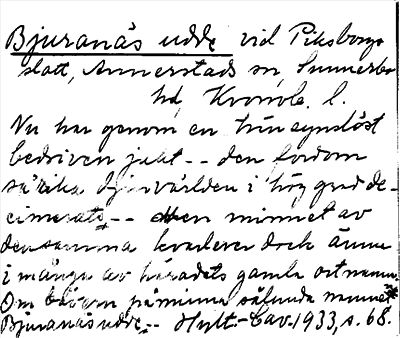 Bjuranäs udde vid Piksborgs
slott, Annerstads sn, Sunnerbo
hd, Kronob. l.
Nu har genom en hänsynslöst
bedriven jakt -- den fordom
så rika djurvärlden i hög grad de-
cimerats -- Men minnet av
densamma kvarlever dock ännu
i många av häradets gamla ortnamn.
Om bävern påminna sålunda namnet
Bjuranäs udde -- Hylt.-Cav. 1933, s. 68.